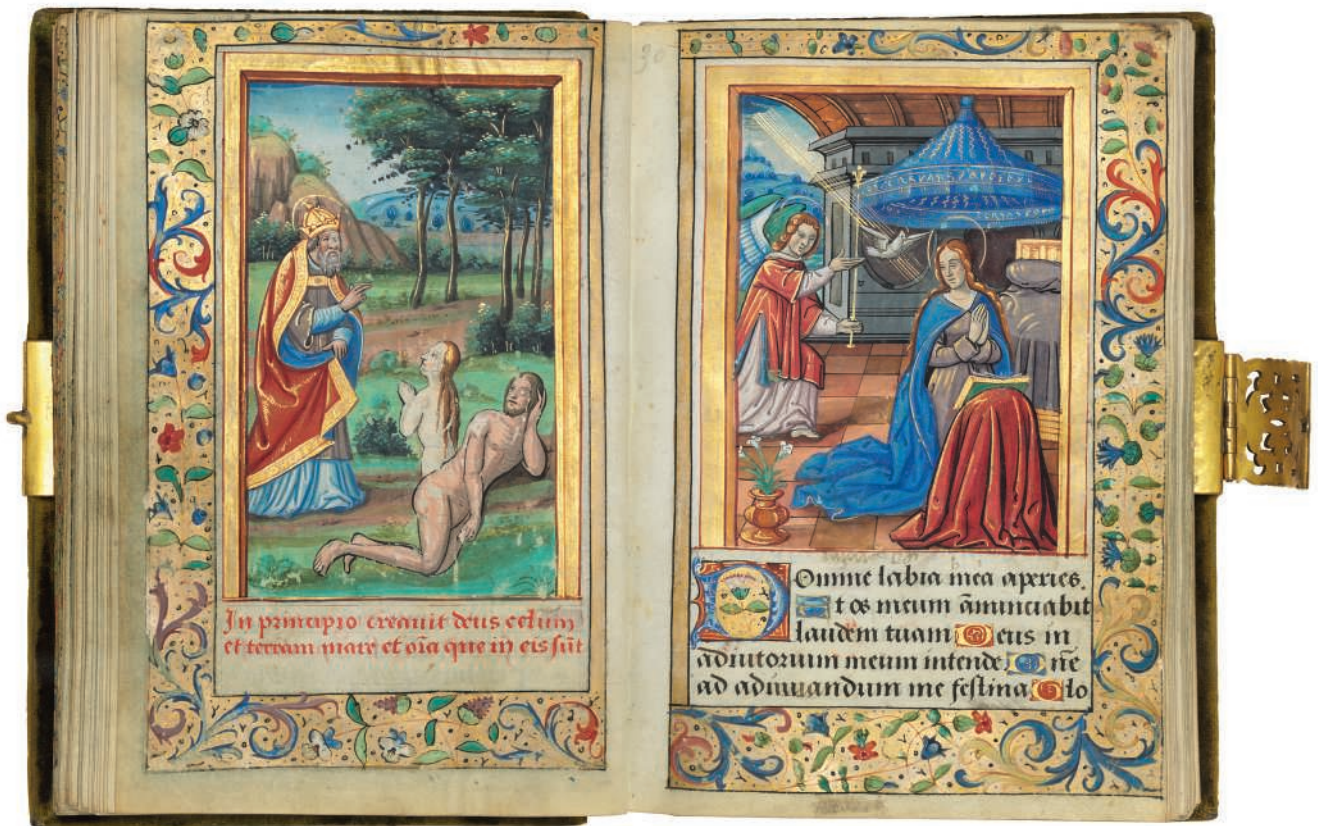 In principio creauit deus celum
et terram mare et oīa que in eis sūt
30
Domine labia mea aperies.
Et os meum ānunciabit
laudem tuam Deus in
adiutorium meum intende Dn̄e
ad adiuuandum me festina Glo